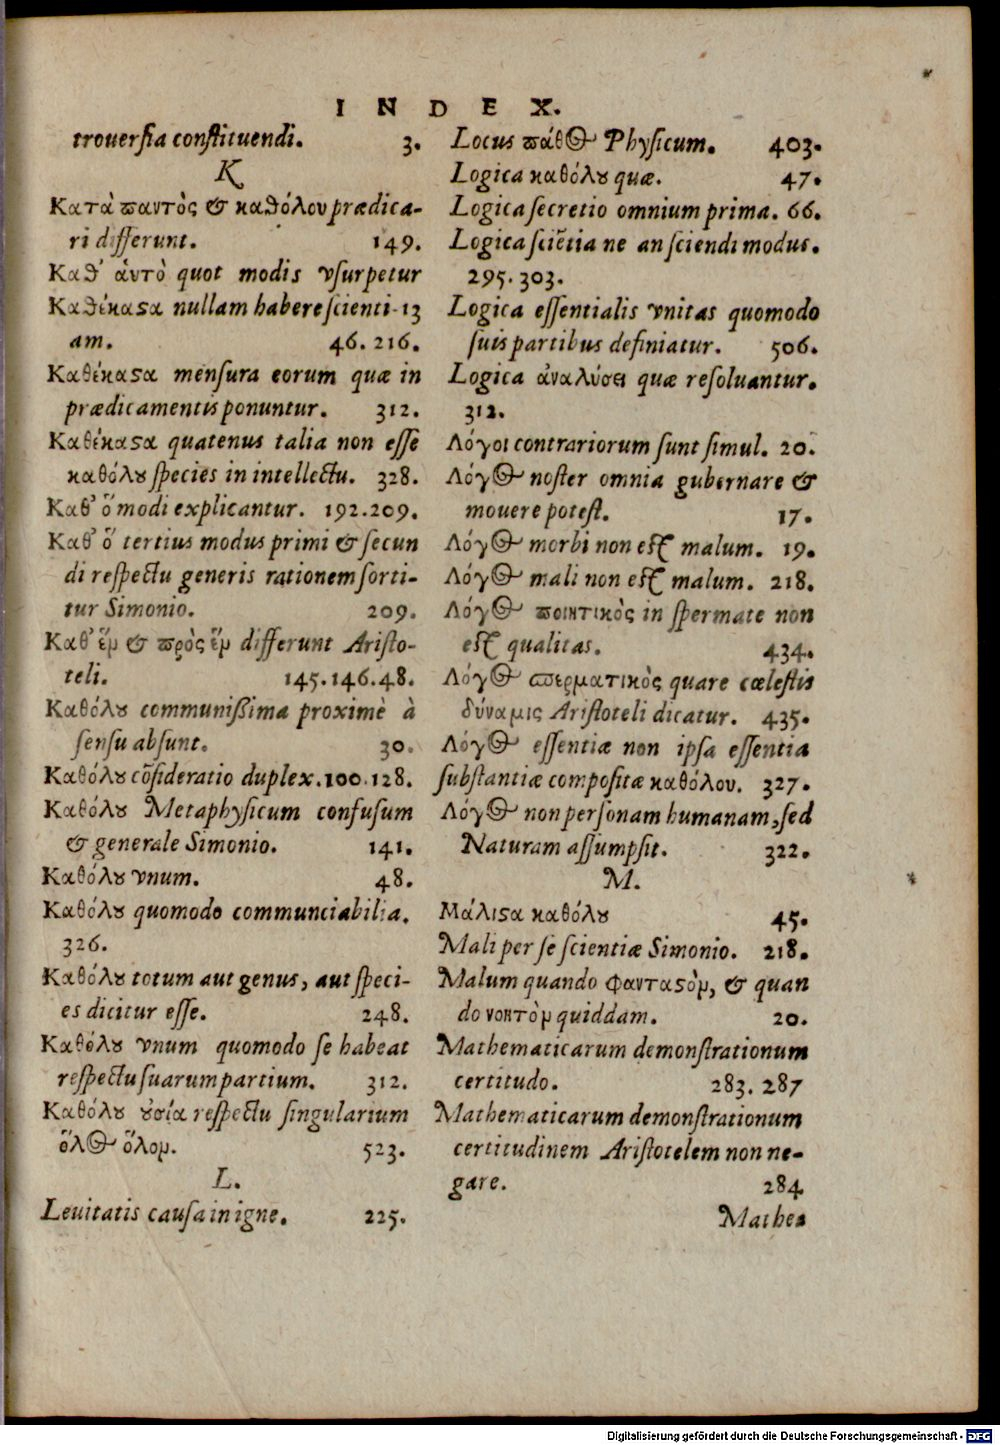 INDEX.
trouersia constituendi. 3.
K
Κατὰ παντὸς & καθόλου prædica-
ri differunt. 149.
Καθ' αὑτὸ quot modis vsurpetur
Καθέκαϛα nullam habere scienti- 13
am. 46. 216.
Καθέκαϛα mensura eorum quæ in
prædicamentis ponuntur. 312.
Καθέκαϛα quatenus talia non esse
καθόλȣ species in intellectu. 328.
Καθ' ὅ modi explicantur. 192. 209.
Καθ' ὅ tertius modus primi & secun
di respectu generis rationem sorti-
tur Simonio. 209.
Καθ' ἕν & πρὸς ἕν differunt Aristo-
teli. 145. 146. 48.
Καθόλȣ communißima proximè à
sensu absunt. 30.
Καθόλȣ cõsideratio duplex. 100. 128.
Καθόλȣ Metaphysicum confusum
& generale Simonio. 141.
Καθόλȣ vnum. 48.
Καθόλȣ quomodo communciabilia.
326.
Καθόλȣ totum aut genus, aut speci-
es dicitur esse. 248.
Καθόλȣ vnum quomodo se habeat
respectu suarum partium. 312.
Καθόλȣ ȣσία respectu singularium
ὅλος ὅλον. 523.
L.
Leuitatis causa in igne. 225.
Locus πάθος Physicum. 403.
Logica καθόλȣ quæ. 47.
Logica secretio omnium prima. 66.
Logica sciẽtia ne an sciendi modus.
295. 303.
Logica essentialis vnitas quomodo
suis partibus definiatur. 506.
Logica ἀναλύσει quæ resoluantur.
312.
Λόγοι contrariorum sunt simul. 20.
Λόγος noster omnia gubernare &
mouere potest. 17.
Λόγος morbi non est malum. 19.
Λόγος mali non est malum. 218.
Λόγος ποιητικὸς in spermate non
est qualitas. 434.
Λόγος σπερματικὸς quare cœlestis
δύναμις Aristoteli dicatur. 435.
Λόγος essentiæ non ipsa essentia
substantiæ compositæ καθόλου. 327.
Λόγος non personam humanam, sed
Naturam assumpsit. 322.
M.
Μάλιϛα καθόλȣ 45.
Mali per se scientiæ Simonio. 218.
Malum quando φανταϛὸν, & quan
do νοητὸν quiddam. 20.
Mathematicarum demonstrationum
certitudo. 283. 287
Mathematicarum demonstrationum
certitudinem Aristotelem non ne-
gare. 284
Mathea
Digitalisierung gefördert durch die Deutsche Forschungsgemeinschaft - DFG